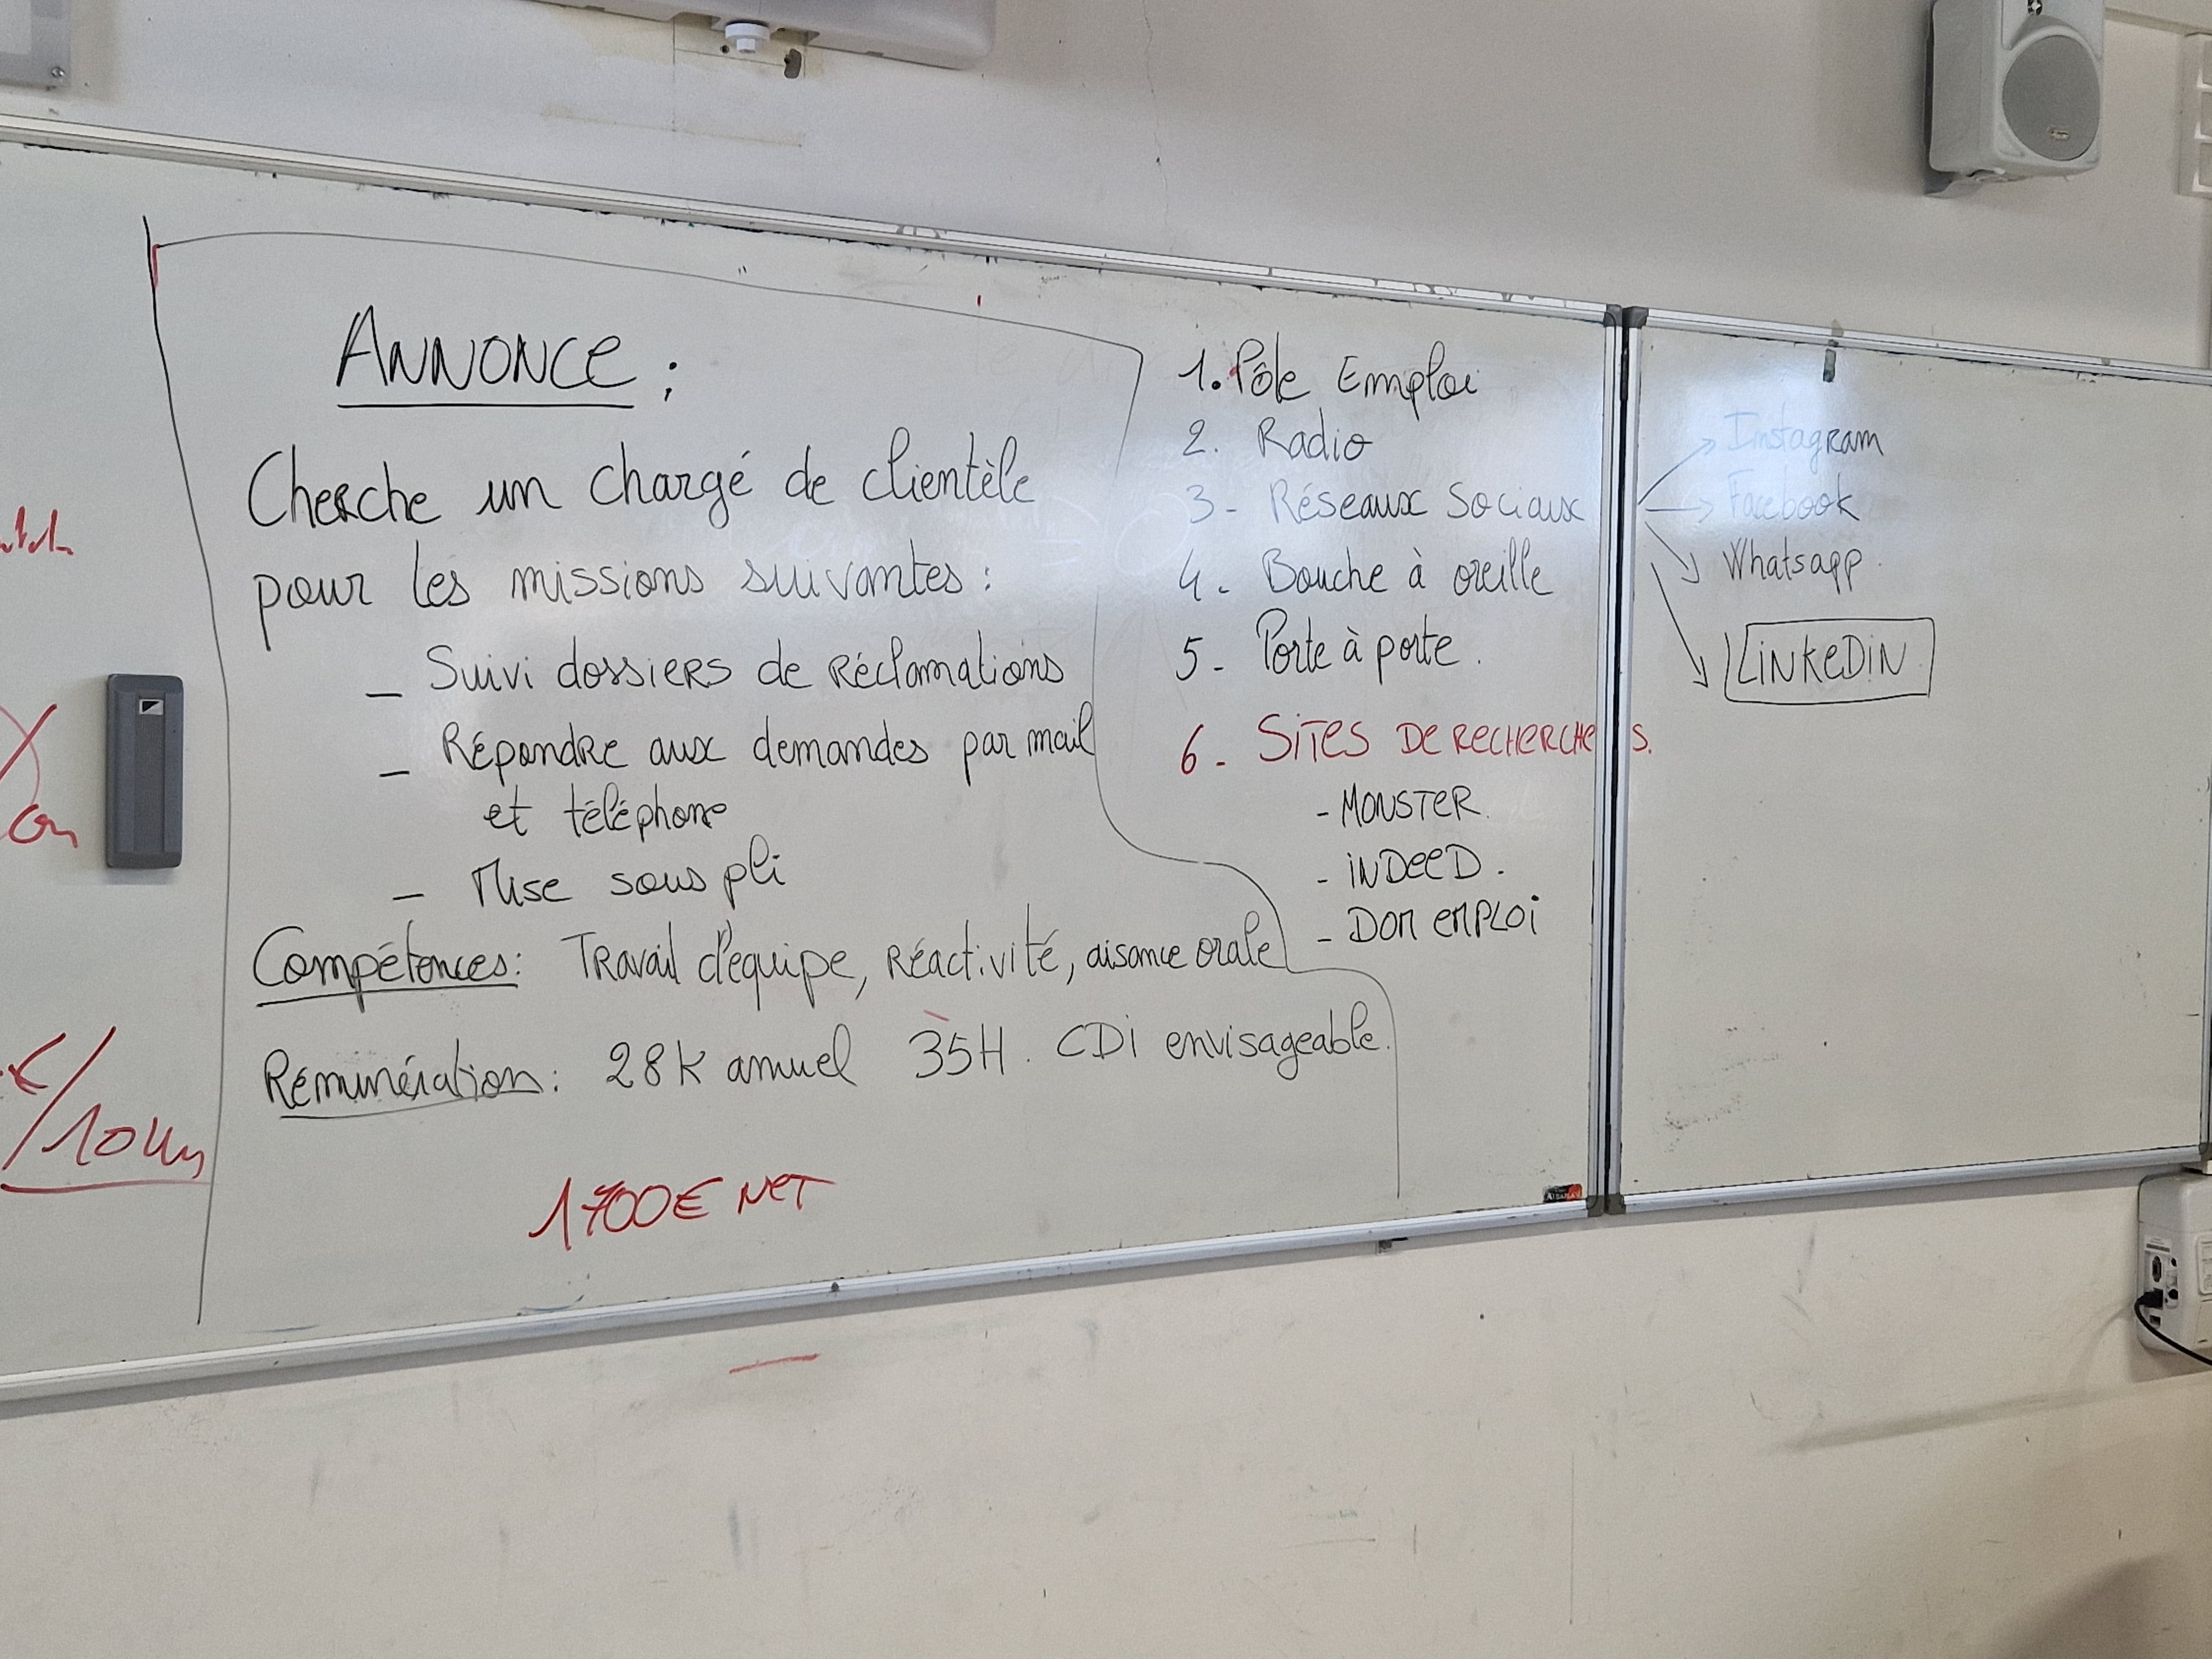 ANNONCE :
Cherche un chargé de clientèle
pour les missions suivantes :
- Suivi dossiers de réclamations
- Répondre aux demandes par mail
et téléphone
- Mise sous pli
Compétences : Travail d'équipe, Réactivité, aisance orale
Rémunération : 28K annuel 35H. CDi envisageable.
1700€ NET
1. Pôle Emploi
2. Radio
3 - Réseaux Sociaux
4 - Bouche à oreille
5 - Porte à porte.
6 - SITES DE RECHERCHES.
- MONSTER.
- INDEED.
- DOM EMPLOI
Instagram
Facebook
Whatsapp.
LINKEDIN